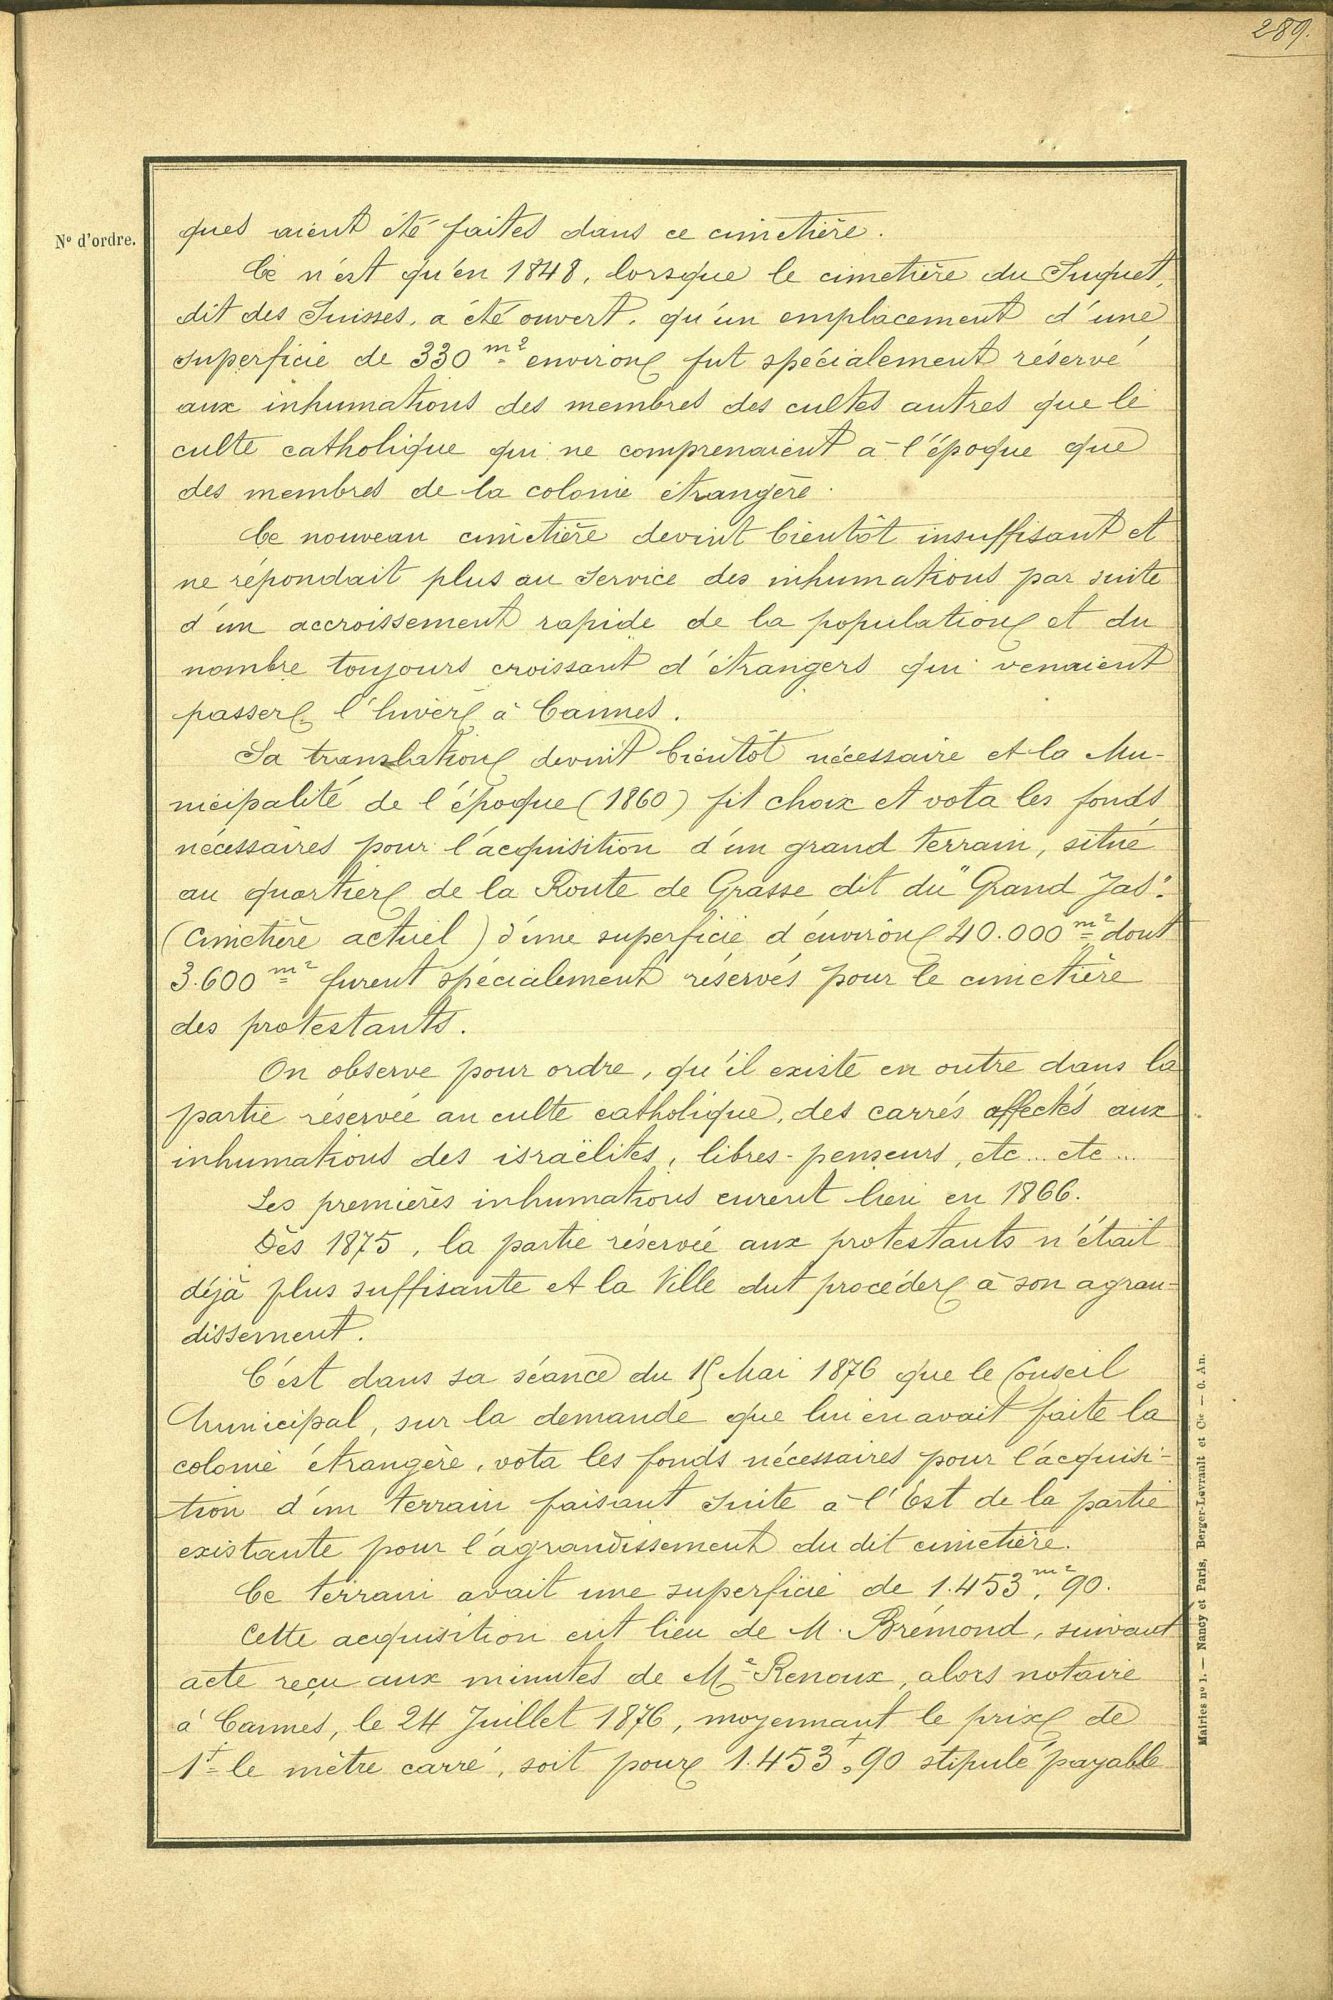 289.
N° d'ordre.
ques aient été faites dans ce cimetière.
Ce n'est qu'en 1848, lorsque le cimetière du Suquet,
dit des Suisses, a été ouvert, qu'un emplacement d'une
superficie de 330 m² environ fut spécialement réservé
aux inhumations des membres des cultes autres que le
culte catholique qui ne comprenaient à l'époque que
des membres de la colonie étrangère.
Ce nouveau cimetière devint bientôt insuffisant et
ne répondait plus au service des inhumations par suite
d'un accroissement rapide de la population et du
nombre toujours croissant d'étrangers qui venaient
passer l'hiver à Cannes.
Sa translation devint bientôt nécessaire et la Mu-
nicipalité de l'époque (1860) fit choix et vota les fonds
nécessaires pour l'acquisition d'un grand terrain, situé
au quartier de la Route de Grasse dit du "Grand Jas".
(Cimetière actuel) d'une superficie d'environ 40.000 m² dont
3.600 m² furent spécialement réservés pour le cimetière
des protestants.
On observe pour ordre, qu'il existe en outre dans la
partie réservée au culte catholique, des carrés affectés aux
inhumations des israëlites, libres-penseurs, etc... etc...
Les premières inhumations eurent lieu en 1866.
Dès 1875, la partie réservée aux protestants n'était
déjà plus suffisante et la Ville dut procéder à son agran-
dissement.
C'est dans sa séance du 15 Mai 1876 que le Conseil
Municipal, sur la demande que lui en avait faite la
colonie étrangère, vota les fonds nécessaires pour l'acquisi-
tion d'un terrain faisant suite à l'Est de la partie
existante pour l'agrandissement du dit cimetière.
Ce terrain avait une superficie de 1.453 m², 90.
Cette acquisition eut lieu de M. Brémond, suivant
acte reçu aux minutes de Me Renoux, alors notaire
à Cannes, le 24 Juillet 1876, moyennant le prix de
1f le mètre carré, soit pour 1.453f,90 stipulé payable
Mairies n° 1. — Nancy et Paris, Berger-Levrault et Cie — O. An.